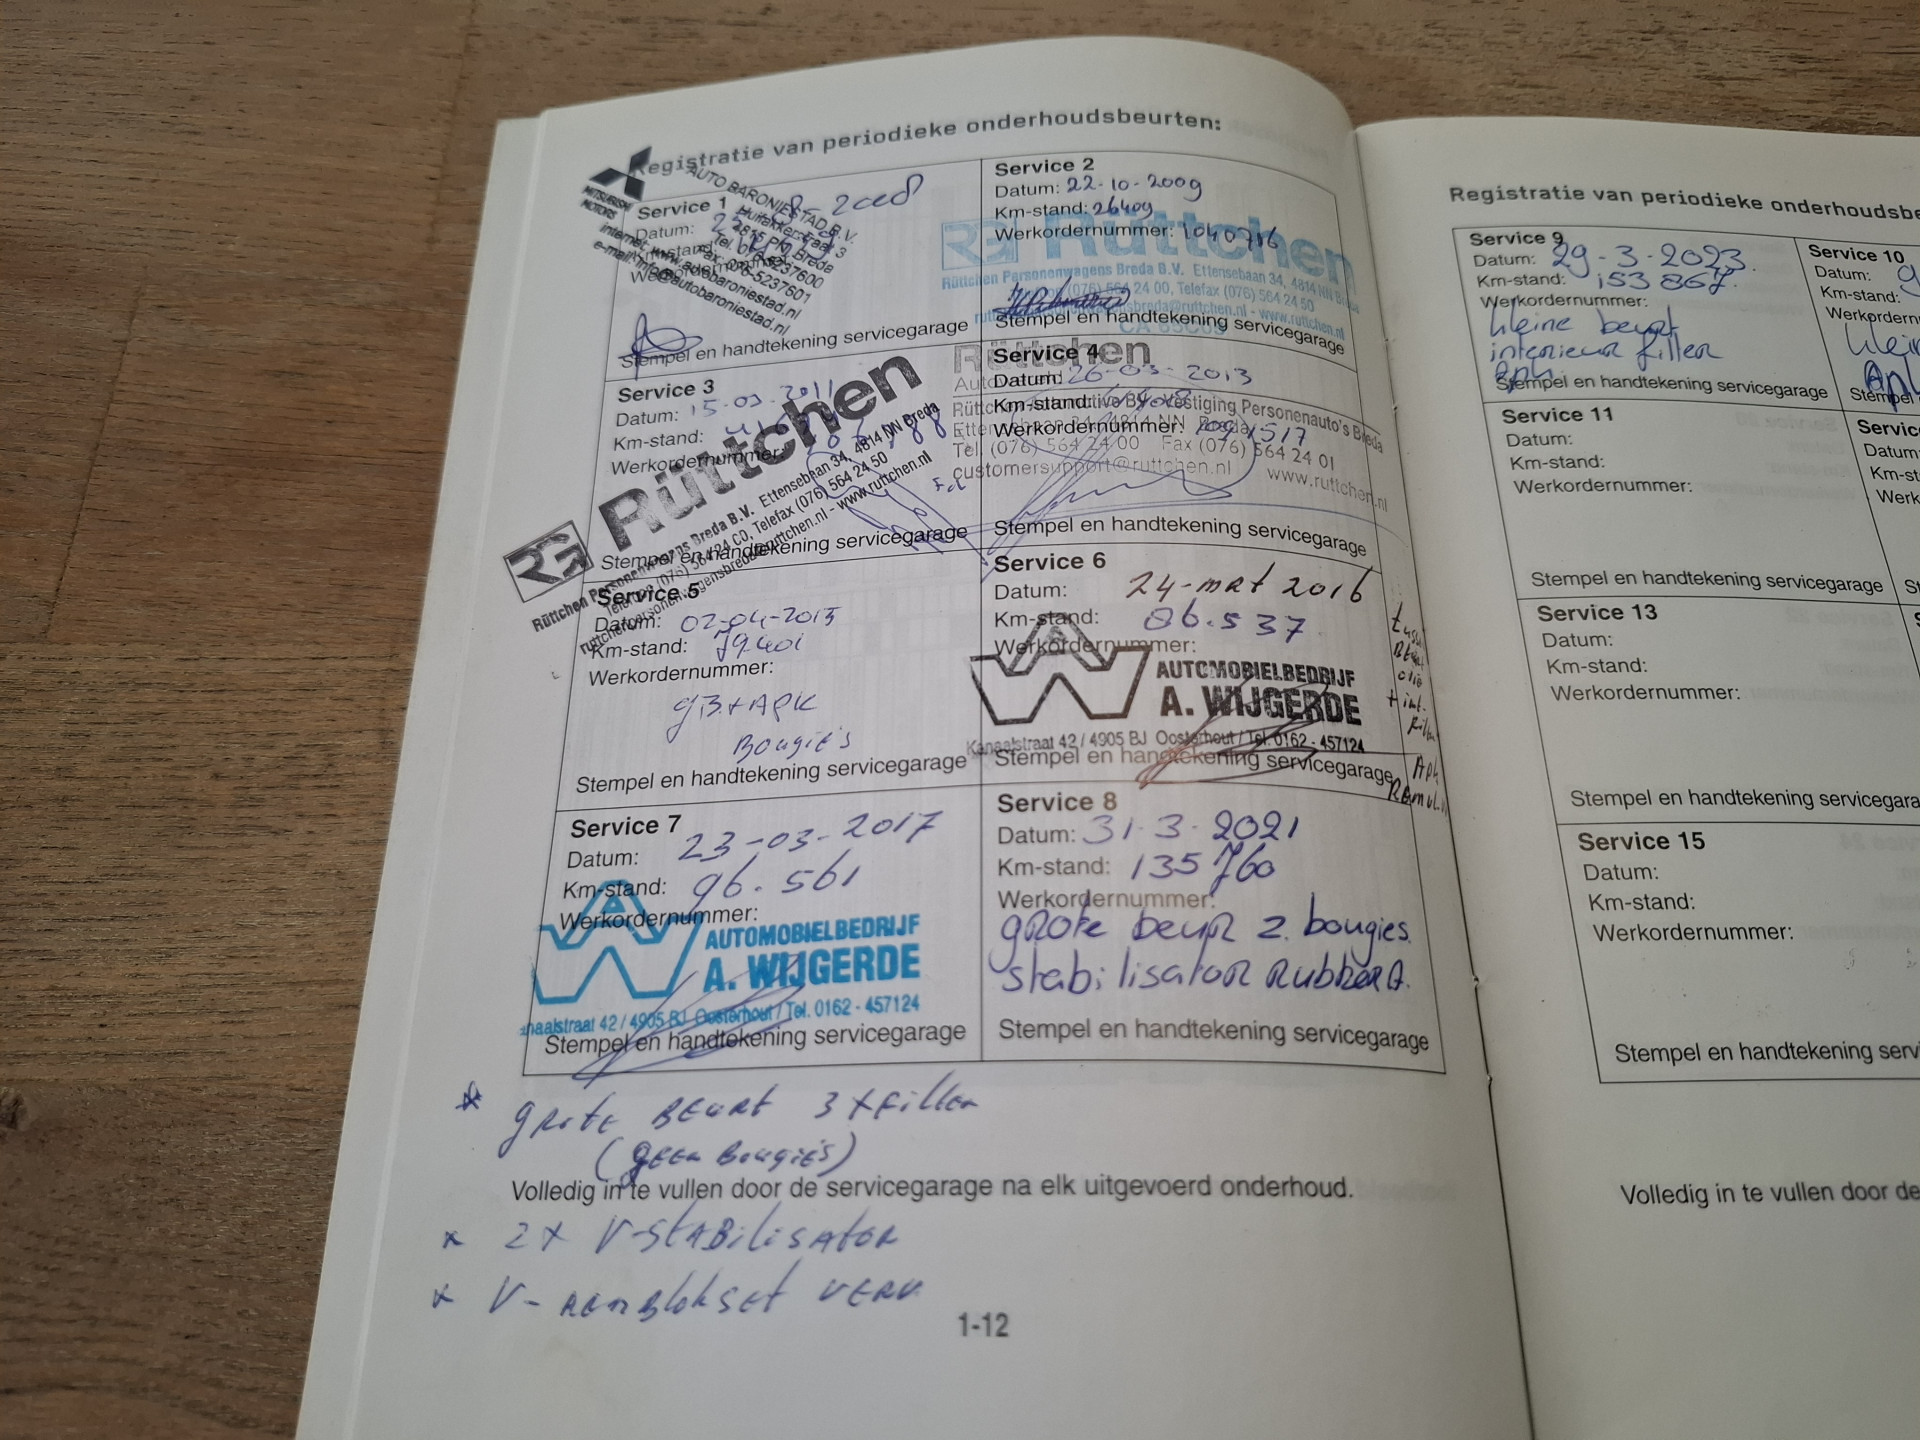 Registratie van periodieke onderhoudsbeurten:
MITSUBISHI
MOTORS
AUTO BARONIESTAD B.V.
4815 PK Breda
Tel. 076-5237600
Fax: 076-5237601
internet: www.autobaroniestad.nl
e-mail: info@autobaroniestad.nl
Service 1
Datum:
Stempel en handtekening servicegarage
Service 2
Datum: 22-10-2009
Km-stand: 26409
Werkordernummer: 1040716
RG Rüttchen
Rüttchen Personenwagens Breda B.V. Ettensebaan 34, 4814 NN Breda
(076) 564 24 00, Telefax (076) 564 24 50
Stempel en handtekening servicegarage
Service 3
Datum: 15-03-2011
Km-stand:
Werkordernummer:
RG Rüttchen
Rüttchen Personenwagens Breda B.V. Ettensebaan 34, 4814 NN Breda
Telefoon (076) 564 24 00, Telefax (076) 564 24 50
www.ruttchen.nl
Stempel en handtekening servicegarage
Service 4
Datum: 26-03-2013
Km-stand:
Werkordernummer:
Rüttchen
Vestiging Personenauto's Breda
Tel. (076) 564 24 00 Fax (076) 564 24 01
customersupport@ruttchen.nl www.ruttchen.nl
Stempel en handtekening servicegarage
Service 5
Datum: 02-04-2015
Km-stand: 79401
Werkordernummer:
gB+APK
Bougie's
Stempel en handtekening servicegarage
Service 6
Datum: 24-mrt 2016
Km-stand: 86.537
Werkordernummer:
AUTOMOBIELBEDRIJF
A. WIJGERDE
Kanaalstraat 42 / 4905 BJ Oosterhout / Tel. 0162 - 457124
Stempel en handtekening servicegarage
olie
+ int.
Apk
Service 7
Datum: 23-03-2017
Km-stand: 96.561
Werkordernummer:
AUTOMOBIELBEDRIJF
A. WIJGERDE
naalstraat 42 / 4905 BJ Oosterhout / Tel. 0162 - 457124
Stempel en handtekening servicegarage
Service 8
Datum: 31-3-2021
Km-stand: 135760
Werkordernummer:
grote beurt z. bougies.
stabilisator Rubbers.
Stempel en handtekening servicegarage
* grote Beurt 3 x Filter
(geen Bougie's)
Volledig in te vullen door de servicegarage na elk uitgevoerd onderhoud.
* 2x V-stabilisator
* V-remblokset verv.
1-12
Registratie van periodieke onderhoudsbe
Service 9
Datum: 29-3-2023.
Km-stand: 153867.
Werkordernummer:
kleine beurt
interieur filter
Apk
Stempel en handtekening servicegarage
Service 10
Datum:
Km-stand:
Werkordern
klein
Ap
Stempel
Service 11
Datum:
Km-stand:
Werkordernummer:
Stempel en handtekening servicegarage
Servic
Datum
Km-st
Werk
Service 13
Datum:
Km-stand:
Werkordernummer:
Stempel en handtekening servicegara
Service 15
Datum:
Km-stand:
Werkordernummer:
Stempel en handtekening servi
Volledig in te vullen door de